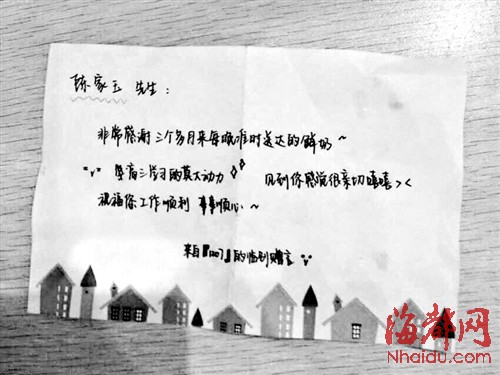 陈家玉 先生：
非常感谢三个多月来每晚准时送达的鲜奶~
是高三学习的莫大动力 见到你感觉很亲切嘻嘻><
祝福你工作顺利 事事顺心~
来自『1207』的临别赠言
海都网
Nhaidu.com